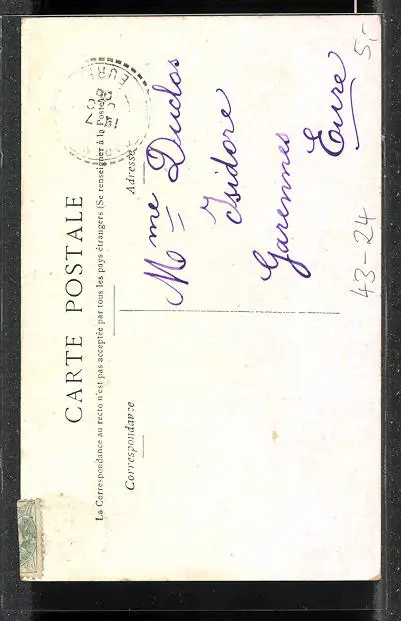 CARTE POSTALE
La Correspondance au recto n'est pas acceptée par tous les pays étrangers (Se renseigner à la Poste)
Correspondance
Adresse
Mme Duclos
Isidore
Garennes
Eure
43-24
5,-
EURE